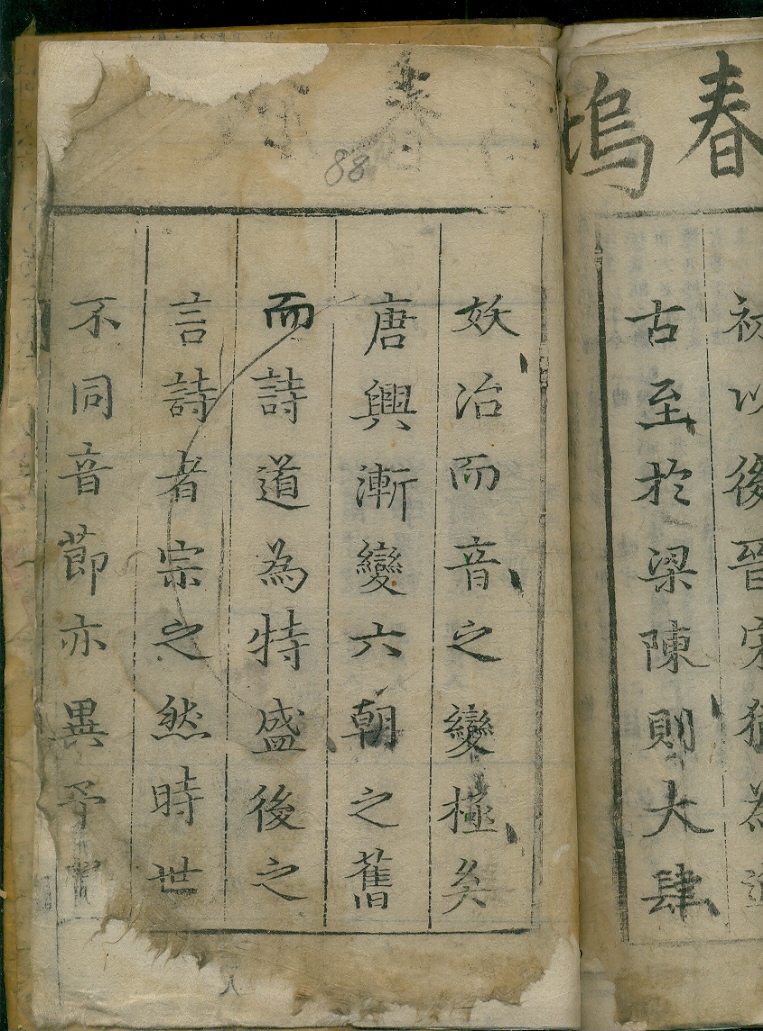 春
塢
初以後晉宋猶為
古至於梁陳則大肆
妖冶而音之變極矣
唐興漸變六朝之舊
而詩道為特盛後之
言詩者宗之然時世
不同音節亦異予
春
88